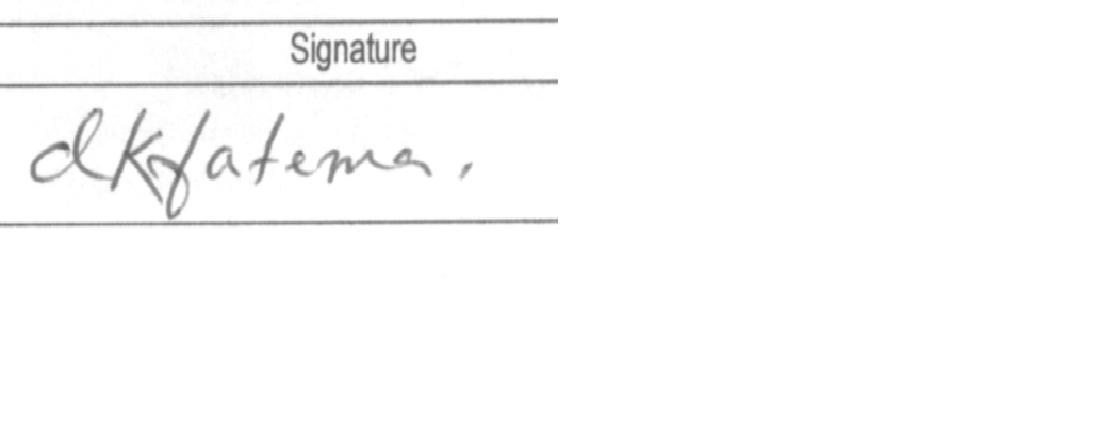 Signature
dkfatema.